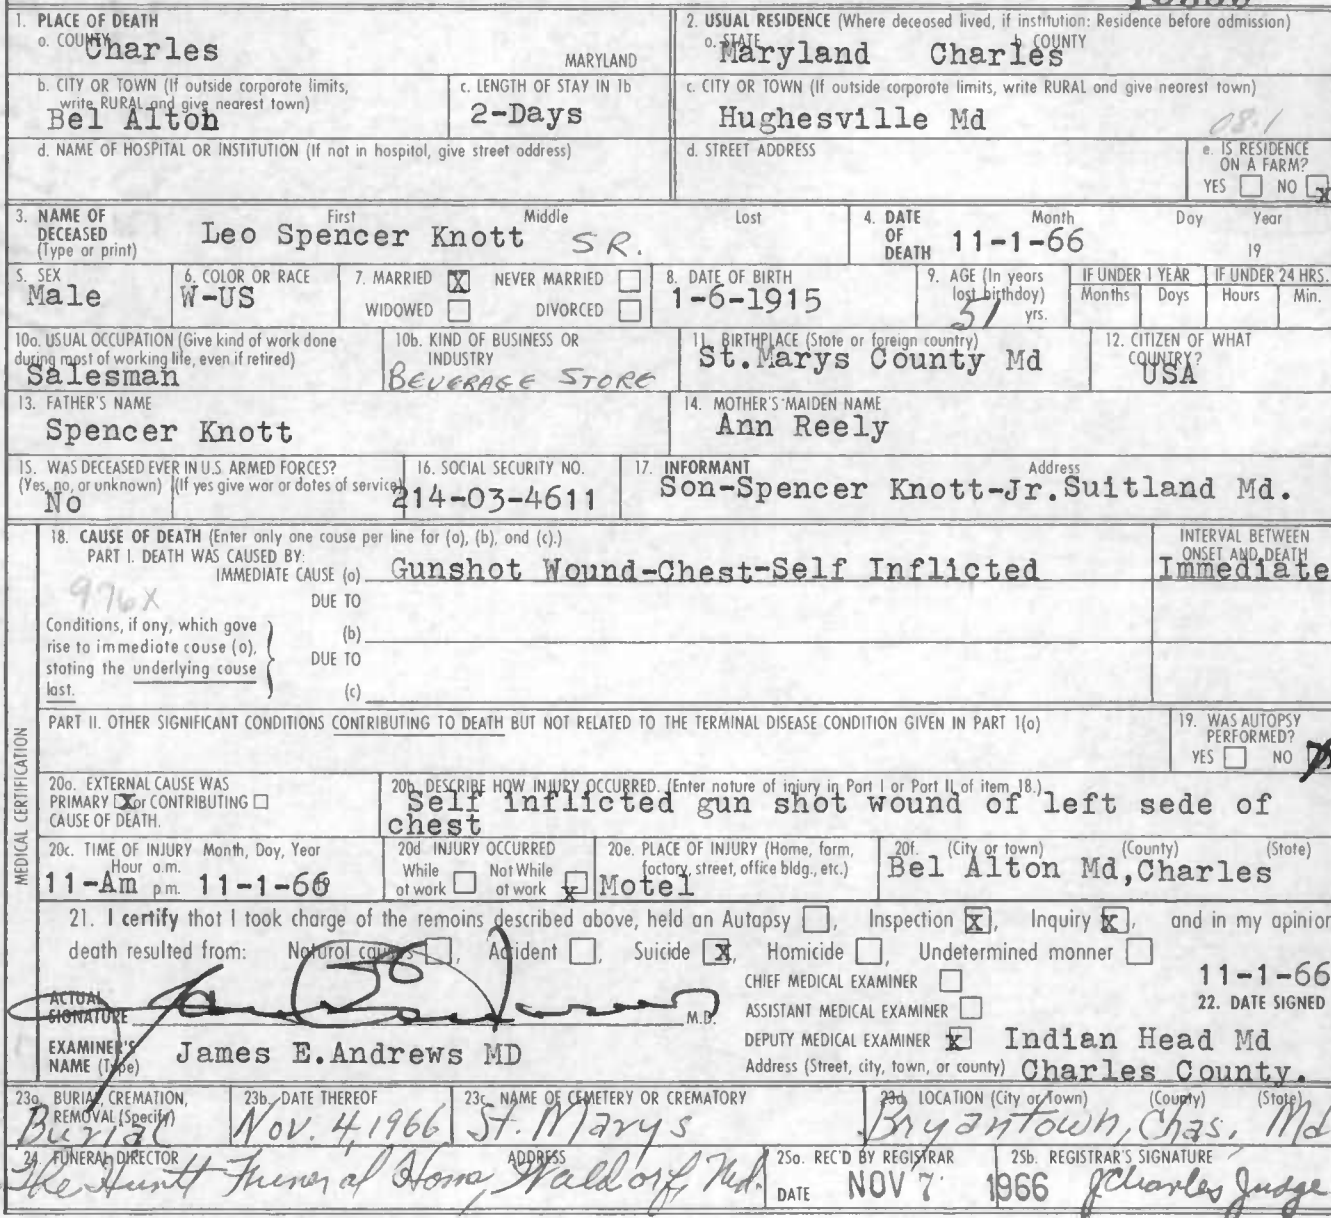 1. PLACE OF DEATH
a. COUNTY Charles MARYLAND
2. USUAL RESIDENCE (Where deceased lived, if institution: Residence before admission)
a. STATE Maryland b. COUNTY Charles
b. CITY OR TOWN (If outside corporate limits, write RURAL and give nearest town)
Bel Alton
c. LENGTH OF STAY IN 1b
2-Days
c. CITY OR TOWN (If outside corporate limits, write RURAL and give nearest town)
Hughesville Md
08.1
d. NAME OF HOSPITAL OR INSTITUTION (If not in hospital, give street address)
d. STREET ADDRESS
e. IS RESIDENCE ON A FARM?
YES NO x
3. NAME OF DECEASED (Type or print)
First Middle Last
Leo Spencer Knott SR.
4. DATE OF DEATH
Month Day Year
11-1-66 19
5. SEX
Male
6. COLOR OR RACE
W-US
7. MARRIED X NEVER MARRIED
WIDOWED DIVORCED
8. DATE OF BIRTH
1-6-1915
9. AGE (In years last birthday)
51 yrs.
IF UNDER 1 YEAR
Months Days
IF UNDER 24 HRS.
Hours Min.
10a. USUAL OCCUPATION (Give kind of work done during most of working life, even if retired)
Salesman
10b. KIND OF BUSINESS OR INDUSTRY
BEVERAGE STORE
11. BIRTHPLACE (State or foreign country)
St.Marys County Md
12. CITIZEN OF WHAT COUNTRY?
USA
13. FATHER'S NAME
Spencer Knott
14. MOTHER'S MAIDEN NAME
Ann Reely
15. WAS DECEASED EVER IN U.S. ARMED FORCES?
(Yes, no, or unknown) (If yes give war or dates of service)
No
16. SOCIAL SECURITY NO.
214-03-4611
17. INFORMANT Address
Son-Spencer Knott-Jr.Suitland Md.
MEDICAL CERTIFICATION
18. CAUSE OF DEATH (Enter only one cause per line for (a), (b), and (c).)
PART I. DEATH WAS CAUSED BY:
IMMEDIATE CAUSE (a) Gunshot Wound-Chest-Self Inflicted
INTERVAL BETWEEN ONSET AND DEATH
Immediate
976X
Conditions, if any, which gave rise to immediate cause (a), stating the underlying cause last.
DUE TO
(b)
DUE TO
(c)
PART II. OTHER SIGNIFICANT CONDITIONS CONTRIBUTING TO DEATH BUT NOT RELATED TO THE TERMINAL DISEASE CONDITION GIVEN IN PART 1(a)
19. WAS AUTOPSY PERFORMED?
YES NO X
20a. EXTERNAL CAUSE WAS
PRIMARY X or CONTRIBUTING
CAUSE OF DEATH.
20b. DESCRIBE HOW INJURY OCCURRED. (Enter nature of injury in Part I or Part II of item 18.)
Self inflicted gun shot wound of left sede of
chest
20c. TIME OF INJURY Month, Day, Year
Hour a.m. p.m.
11-Am 11-1-66
20d INJURY OCCURRED
While at work Not While at work x
20e. PLACE OF INJURY (Home, farm, factory, street, office bldg., etc.)
Motel
20f. (City or town) (County) (State)
Bel Alton Md,Charles
21. I certify that I took charge of the remains described above, held an Autopsy , Inspection X, Inquiry X, and in my opinion
death resulted from: Natural causes , Accident , Suicide X, Homicide , Undetermined manner
CHIEF MEDICAL EXAMINER
ASSISTANT MEDICAL EXAMINER
DEPUTY MEDICAL EXAMINER X
11-1-66
22. DATE SIGNED
ACTUAL SIGNATURE M.D.
EXAMINER'S NAME (Type) James E.Andrews MD
Indian Head Md
Address (Street, city, town, or county) Charles County.
23a. BURIAL, CREMATION, REMOVAL (Specify)
Burial
23b. DATE THEREOF
Nov. 4, 1966
23c. NAME OF CEMETERY OR CREMATORY
St. Marys
23d LOCATION (City or Town) (County) (State)
Bryantown, Chas, Md
24. FUNERAL DIRECTOR ADDRESS
The Huntt Funeral Home, Waldorf, Md.
25a. REC'D BY REGISTRAR
DATE NOV 7 1966
25b. REGISTRAR'S SIGNATURE
J Charles Judge